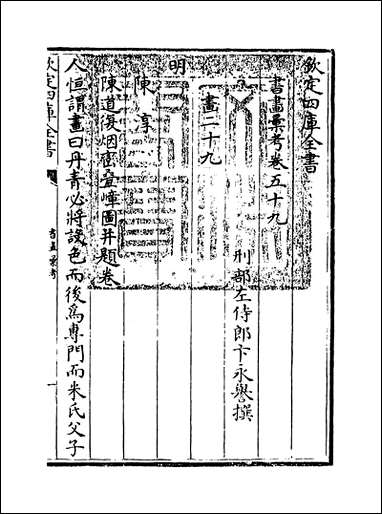 欽定四庫全書
書畫彙考卷五十九
刑部左侍郎卞永譽撰
畫二十九
明
陳淳
陳道復烟巒疊嶂圖并題卷
人恒謂畫曰丹青必將設色而後為專門而米氏父子
欽定四庫全書
書畫彙考
一